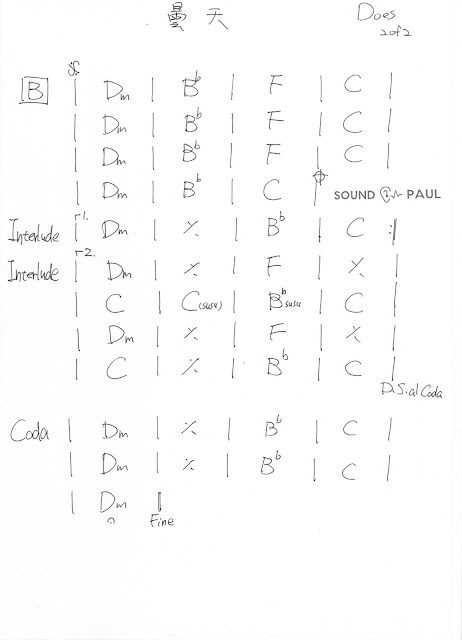 曇天 Does
2of2
𝄋
B | Dm | B♭ | F | C |
| Dm | B♭ | F | C |
| Dm | B♭ | F | C |
| Dm | B♭ | C | 𝄌 SOUND PAUL
Interlude 1. | Dm | ٪ | B♭ | C :|
Interlude 2. | Dm | ٪ | F | ٪ |
| C | C(sus4) | B♭sus4 | C |
| Dm | ٪ | F | ٪ |
| C | ٪ | B♭ | C |
D.S. al Coda
Coda | Dm | ٪ | B♭ | C |
| Dm | ٪ | B♭ | C |
| Dm ||
Fine